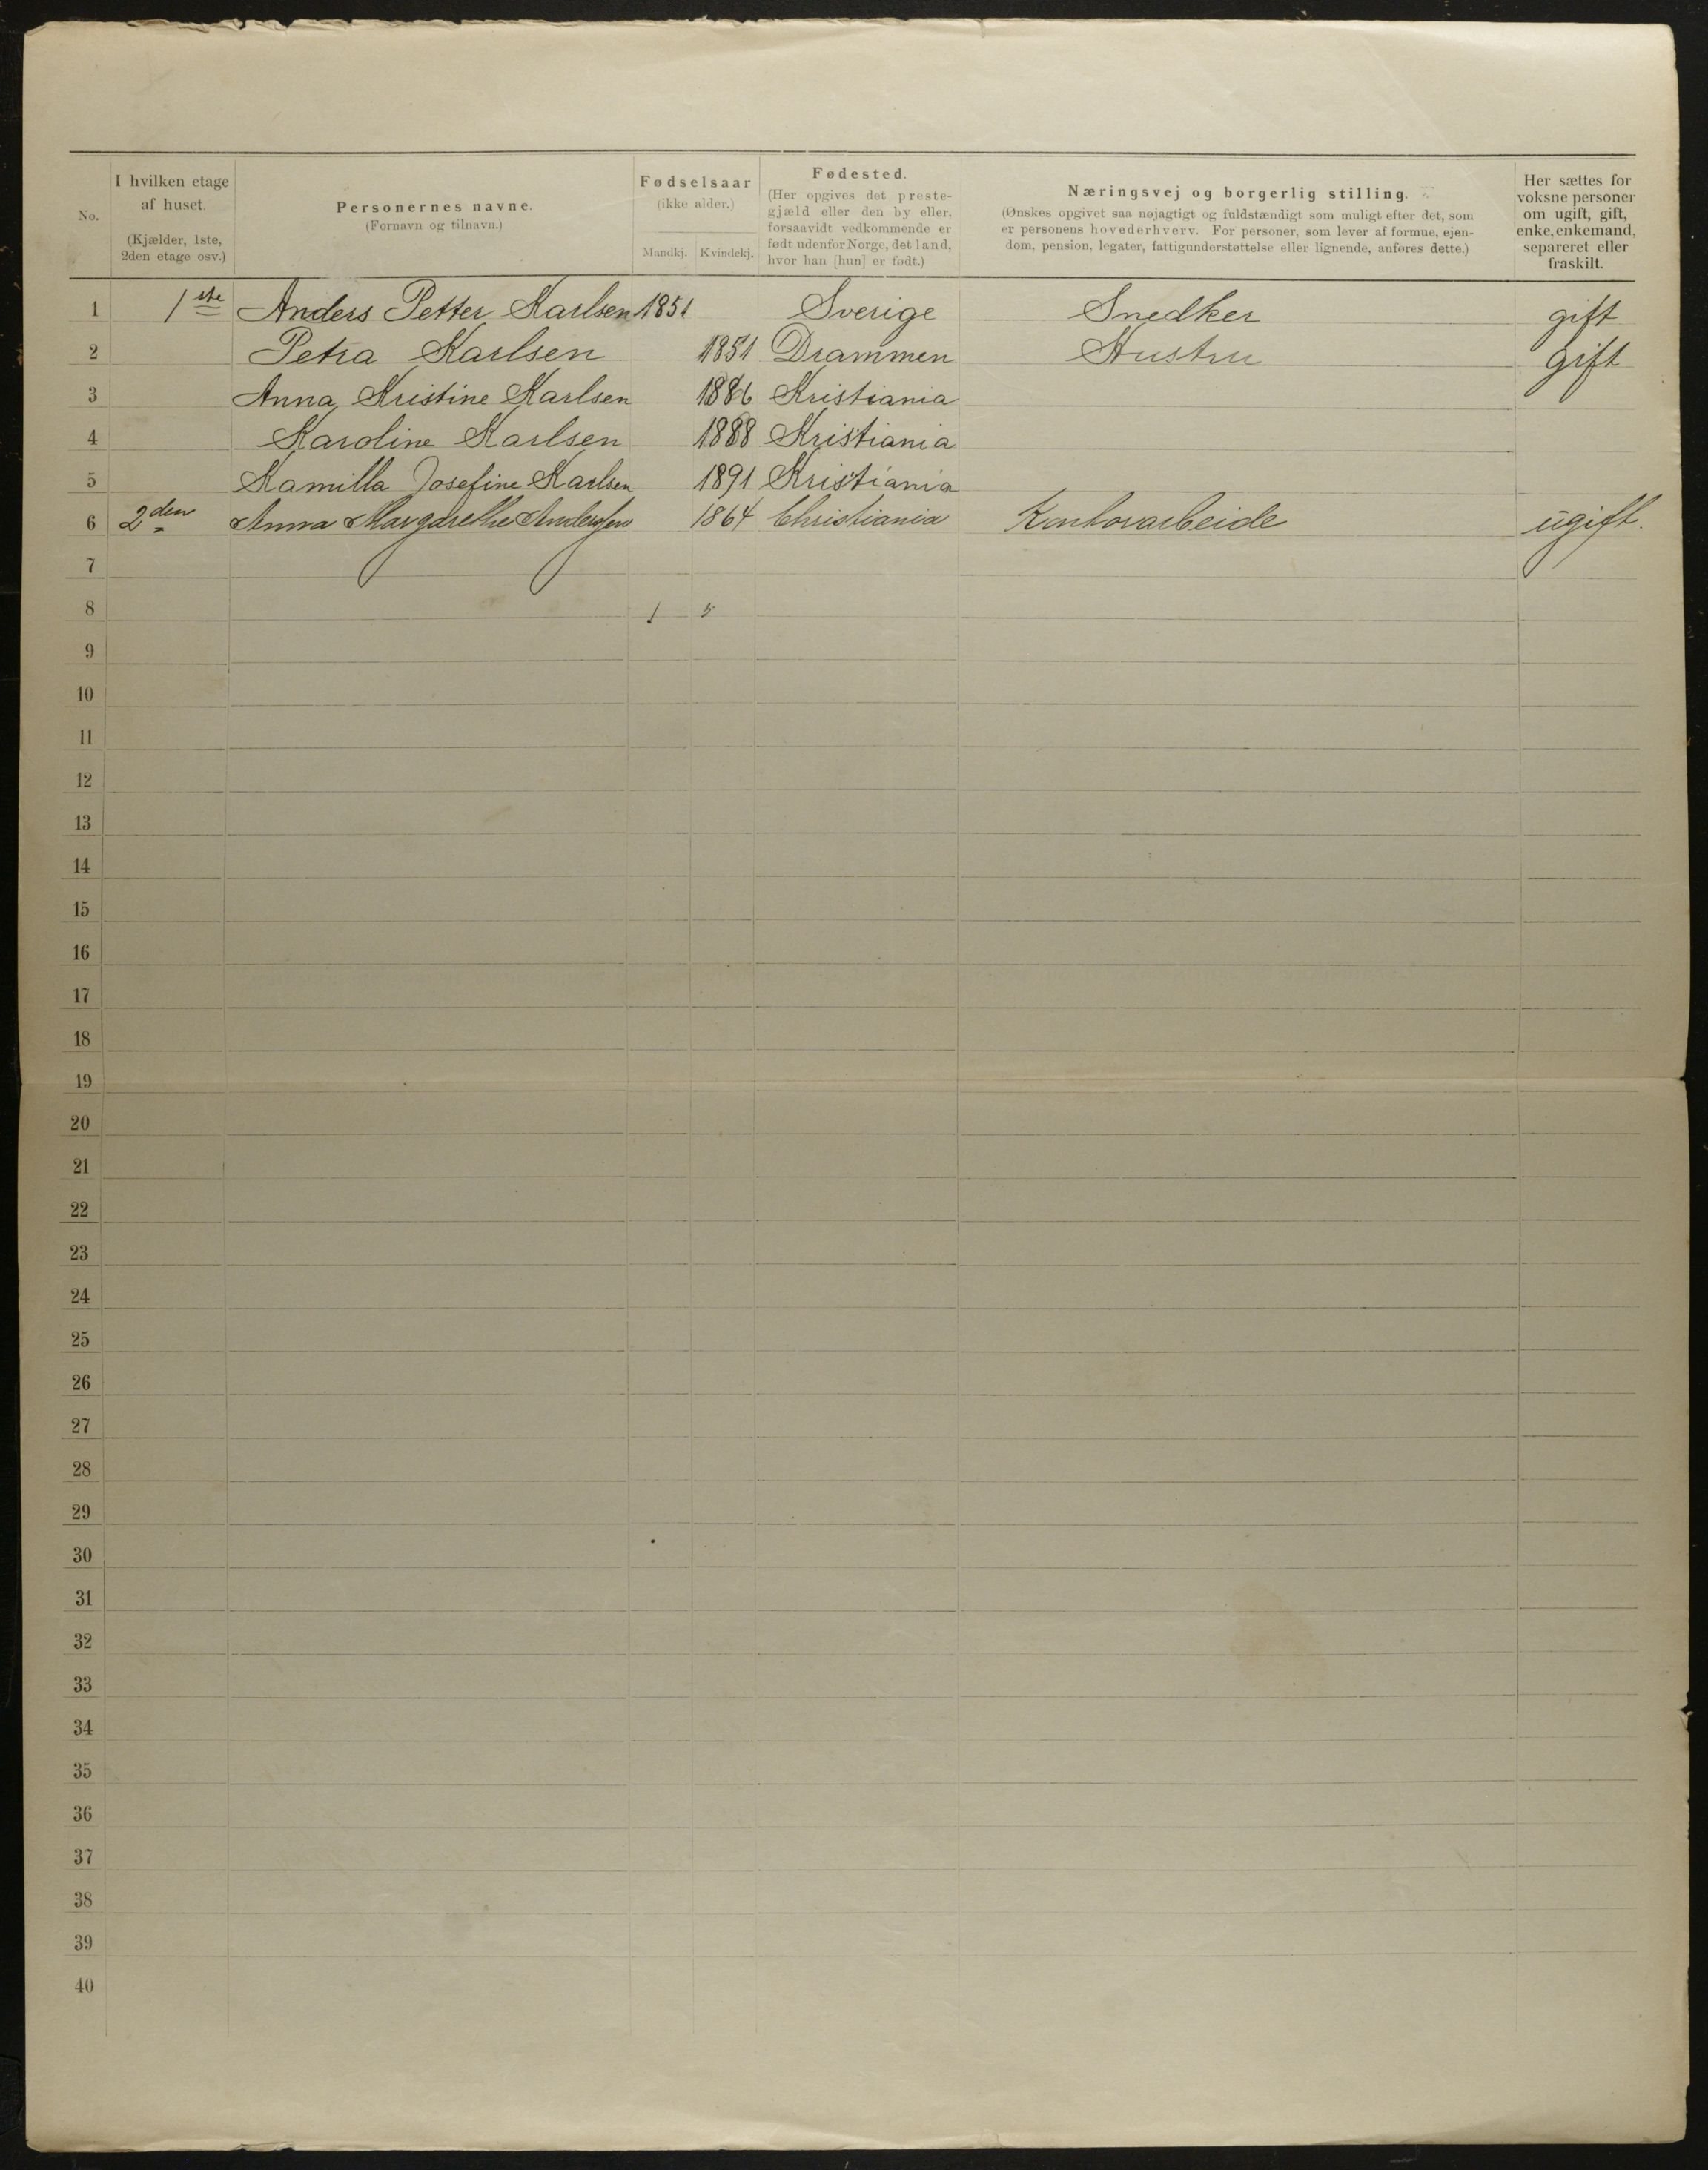 No.
I hvilken etage af huset. (Kjælder, 1ste, 2den etage osv.)
Personernes navne. (Fornavn og tilnavn.)
Fødselsaar (ikke alder.)
Mandkj. Kvindekj.
Fødested. (Her opgives det prestegjæld eller den by eller, forsaavidt vedkommende er født udenfor Norge, det land, hvor han [hun] er født.)
Næringsvej og borgerlig stilling.
(Ønskes opgivet saa nøjagtigt og fuldstændigt som muligt efter det, som er personens hovederhverv. For personer, som lever af formue, ejendom, pension, legater, fattigunderstøttelse eller lignende, anføres dette.)
Her sættes for voksne personer om ugift, gift, enke, enkemand, separeret eller fraskilt.
1 1ste Anders Petter Karlsen 1851 Sverige Snedker gift
2 Petra Karlsen 1851 Drammen Hustru gift
3 Anna Kristine Karlsen 1886 Kristiania
4 Karoline Karlsen 1888 Kristiania
5 Kamilla Josefine Karlsen 1891 Kristiania
6 2den Anna Margarethe Anderssen 1864 Christiania Kontorarbeide ugift.
7
8 1 5
9
10
11
12
13
14
15
16
17
18
19
20
21
22
23
24
25
26
27
28
29
30
31
32
33
34
35
36
37
38
39
40